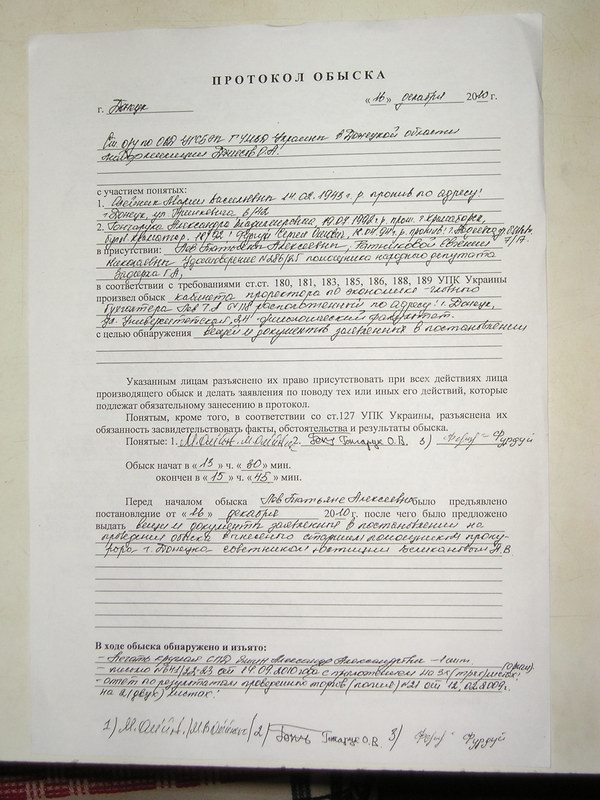 ПРОТОКОЛ ОБЫСКА
г. Донецк «16» декабря 2010 г.
Ст. о/у по ОВД УГСБЭП ГУМВД Украины в Донецкой области
с участием понятых:
1. Олейник Марии Васильевны 14.02.1943 г.р. прожив. по адресу:
г. Донецк, ул.
2. Гончарука Александра
в присутствии: Лов Татьяны Алексеевны, Евгении
Николаевны Удостоверение № 286/65 помощника народного депутата
в соответствии с требованиями ст.ст. 180, 181, 183, 185, 186, 188, 189 УПК Украины
произвел обыск кабинета проректора по экономике – главного
бухгалтера Лов Т.А. расположенный по адресу: г. Донецк,
ул. Университетская, 24 филологический факультет.
с целью обнаружения вещей и документов заявленных в постановлении
Указанным лицам разъяснено их право присутствовать при всех действиях лица
производящего обыск и делать заявления по поводу тех или иных его действий, которые
подлежат обязательному занесению в протокол.
Понятым, кроме того, в соответствии со ст.127 УПК Украины, разъяснена их
обязанность засвидетельствовать факты, обстоятельства и результаты обыска.
Понятые: 1. 2. Гончарук О.В. 3) Фурдуй
Обыск начат в « 13 » ч. « 00 » мин.
окончен в « 15 » ч. « 45 » мин.
Перед началом обыска Лов Татьяне Алексеевне было предъявлено
постановление от « 16 » декабря 2010 г. после чего было предложено
выдать вещи и документы заявленные в постановлении на
проведения обыска вынесенного старшим помощником проку-
рора г. Донецка советником юстиции А.В
В ходе обыска обнаружено и изъято:
- Печать круглая СПД Александр Александрович – 1 шт.
- письмо № 41/22-23 от 14.09.2010 года с приложением на 3х/трех/листах
- отчет по результатам проведения торгов /копия/ №21 от 12.02.2009г.
на 2 (двух) листах.
1) 2) Гончарук О.В. 3) Фурдуй